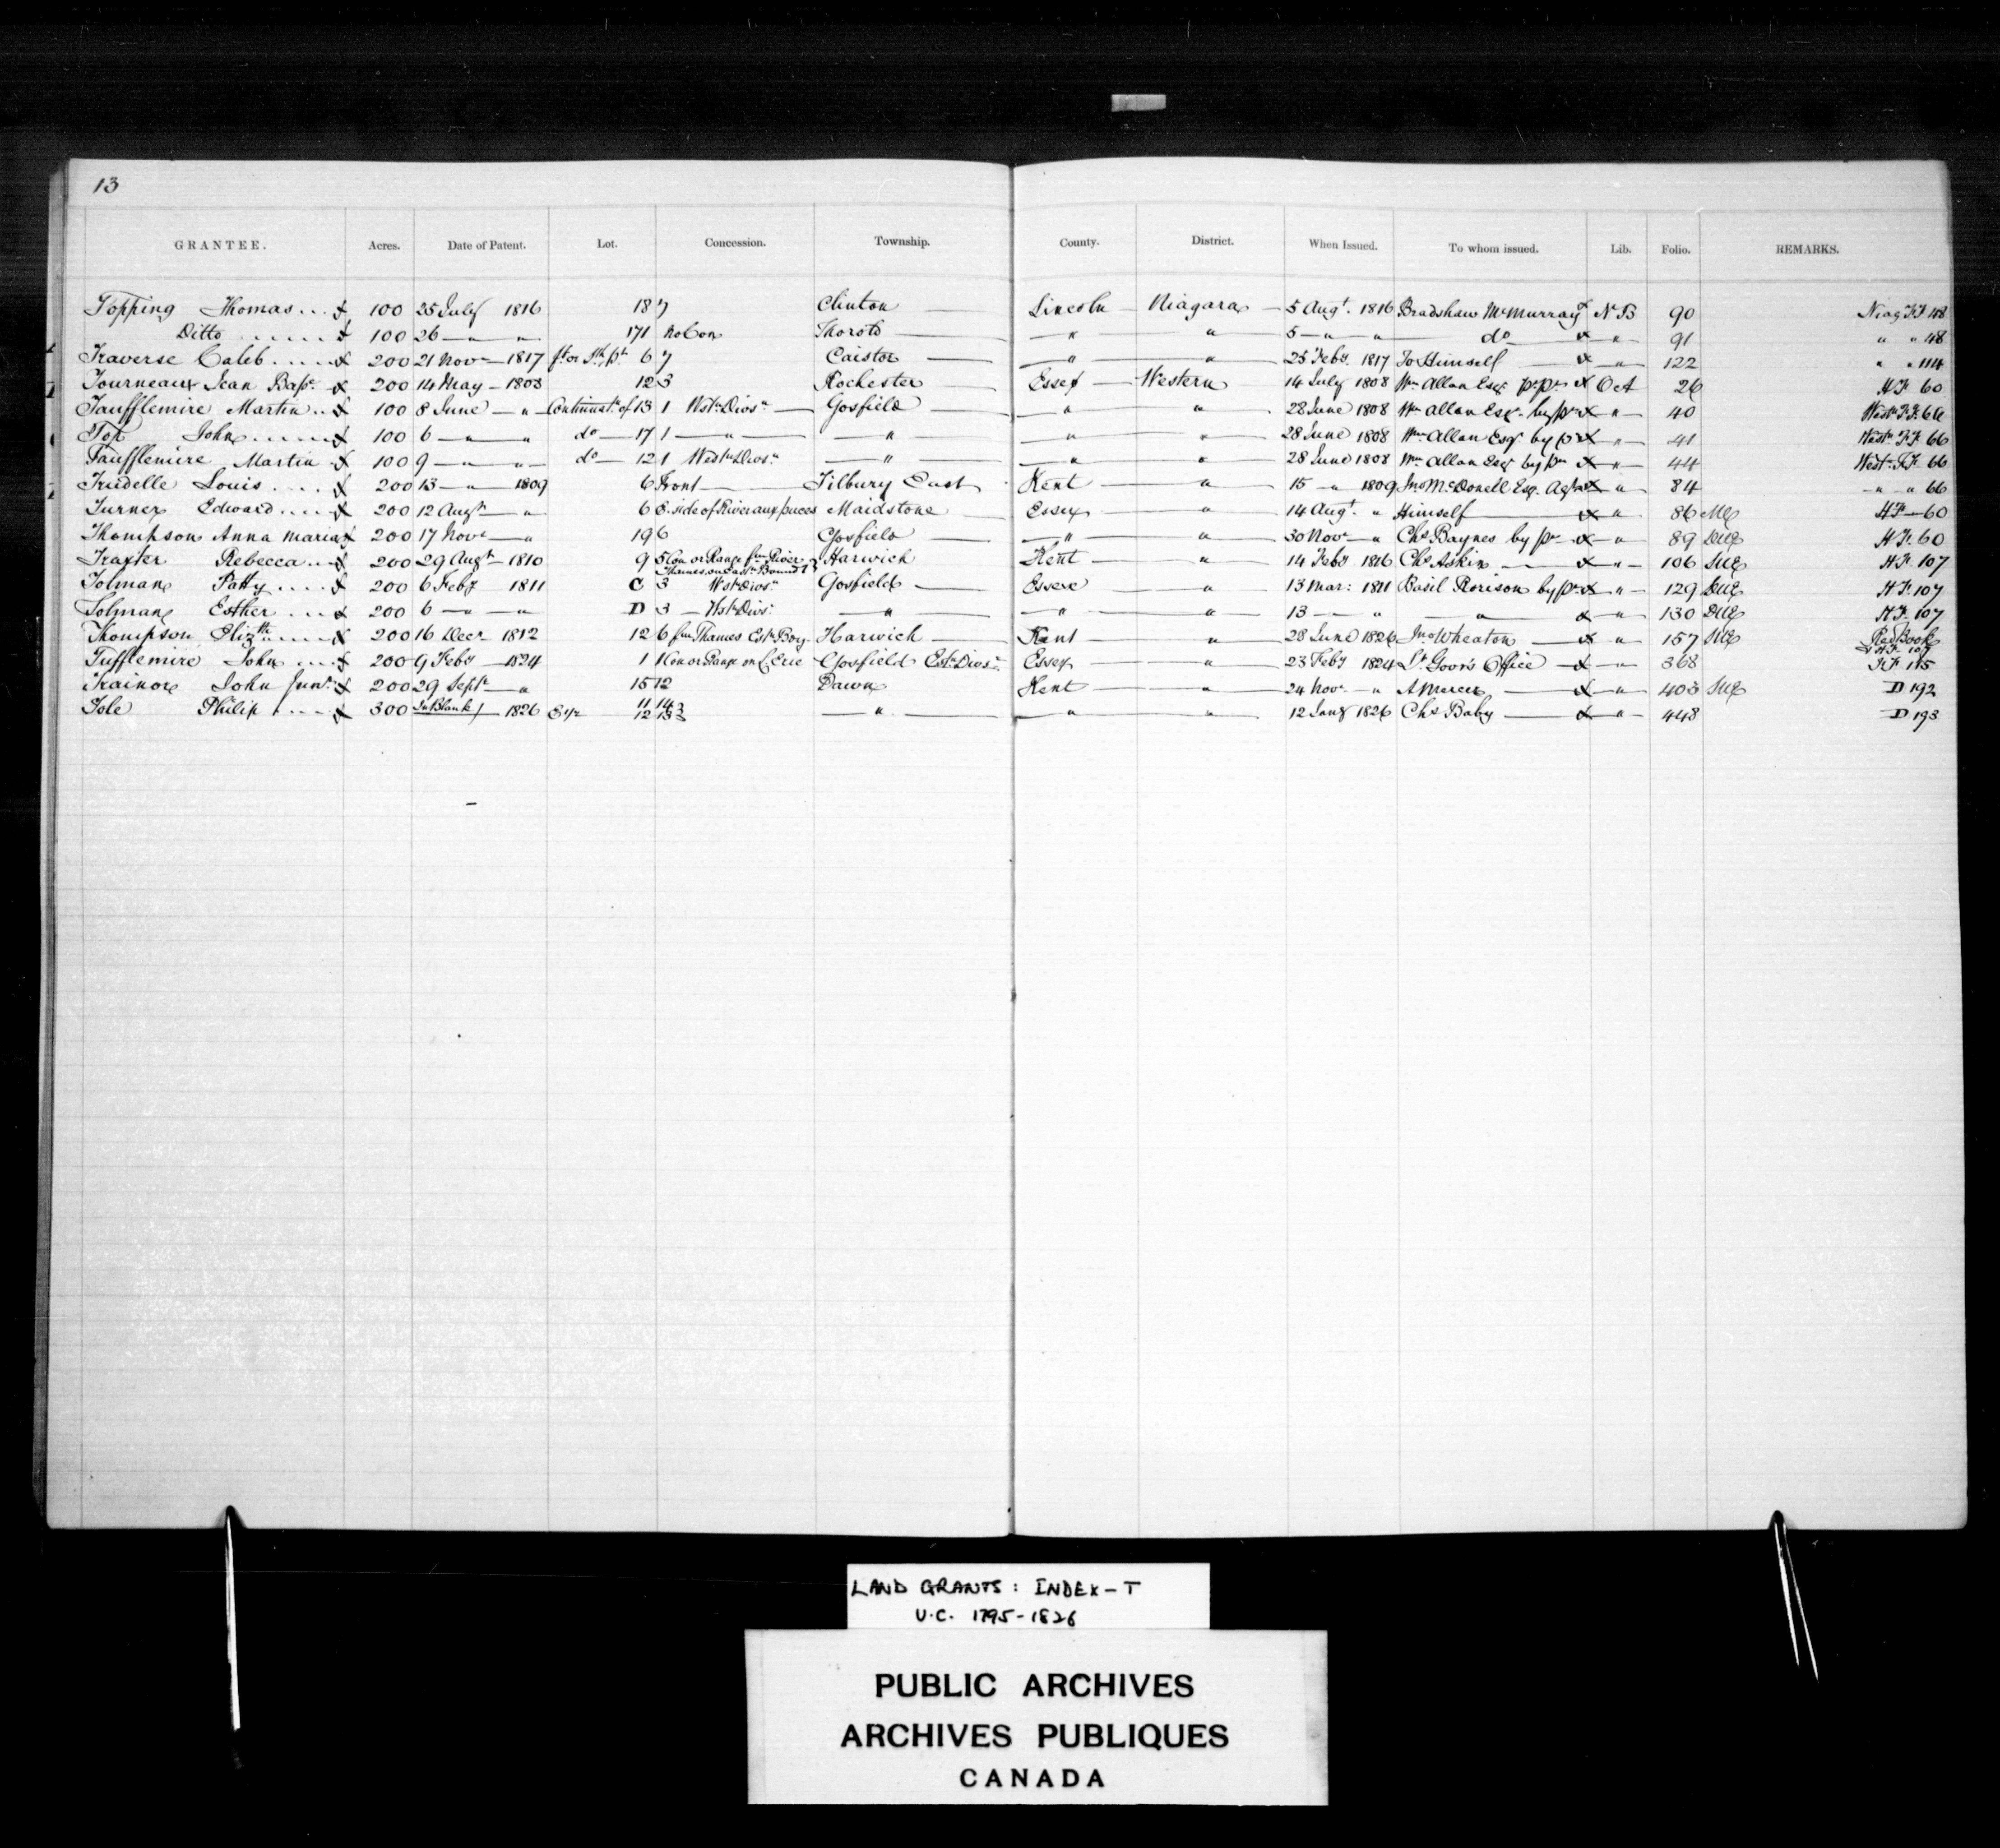 13
GRANTEE. Acres. Date of Patent. Lot. Concession. Township. County. District. When Issued. To whom issued. Lib. Folio. REMARKS.
Topping Thomas... 100 25 July 1816 18 7 Clinton Lincoln Niagara 5 Augt. 1816 Bradshaw McMurray N B 90 Niag FF 48
Ditto 100 26 " " 171 No Con Thorold " " 5 " " do " 91 " " 48
Traverse Caleb.... 200 21 Novr 1817 6 7 Caistor " " 25 Feby. 1817 To Himself " 122 " " 114
Tourneaux Jean Bapt. 200 14 May 1803 12 3 Rochester Essex Western 14 July 1808 Wm Allan Esqr pr pr Oct A 26 HF 60
Taufflemire Martin.. 100 8 June " Continuatn of 13 1 Wstn Divsn Gosfield " " 28 June 1808 Wm Allan Esqr. by pr " 40 Westn FF 66
Tof John...... 100 6 " " do 17 1 " " " " 28 June 1808 Wm Allan Esqr by pr " 41 Westn FF 66
Taufflemire Martin 100 9 " " do 12 1 Westn Divsn " " " 28 June 1808 Wm Allan Esqr by pr " 44 Westn FF 66
Trudelle Louis.... 200 13 " 1809 6 Front Tilbury East Kent " 15 " 1809 Jno McDonell Esqr. Agt " 84 " " 66
Turner Edward.... 200 12 Augt " 6 E. side of River aux puces Maidstone Essex " 14 Augt. " Himself " 86 HF 60
Thompson Anna Maria 200 17 Novr " 19 6 Gosfield " " 30 Novr " Chs Baynes by pr " 89 DUE HF 60
Traxter Rebecca.. 200 29 Augt 1810 9 5 Con or Range fm River Thames on Eastn Bound Harwich Kent " 14 Feby 1816 Chs Askin " 106 SUE HF 107
Tolman Patty.... 200 6 Feby 1811 C 3 Wstn Divsn Gosfield Essex " 13 Mar: 1811 Basil Rorison by pr " 129 DUE HF 107
Tolman Esther... 200 6 " " D 3 Wstn Divsn " " " 13 " " " 130 DUE HF 107
Thompson Elizth.... 200 16 Decr 1812 12 6 fm Thames Estn Boy Harwich Kent " 28 June 1826 Jno Wheaton " 157 SUE Red Book & HF 107
Tufflemire John.... 200 9 Feby 1824 1 1 Con or Range on L. Erie Gosfield Estn Divsn Essex " 23 Feby 1824 Lt Govr's Office " 368 FF 175
Trainor John Junr. 200 29 Septr " 15 12 Dawn Kent " 24 Novr " A Mercer " 403 SUE D 192
Tole Philip.... 300 In Blank 1826 11 14 3 " " " 12 Jany 1826 Chs Baby " 448 D 193
12 13 3
LAND GRANTS: INDEX-T
U.C. 1795-1826
PUBLIC ARCHIVES
ARCHIVES PUBLIQUES
CANADA